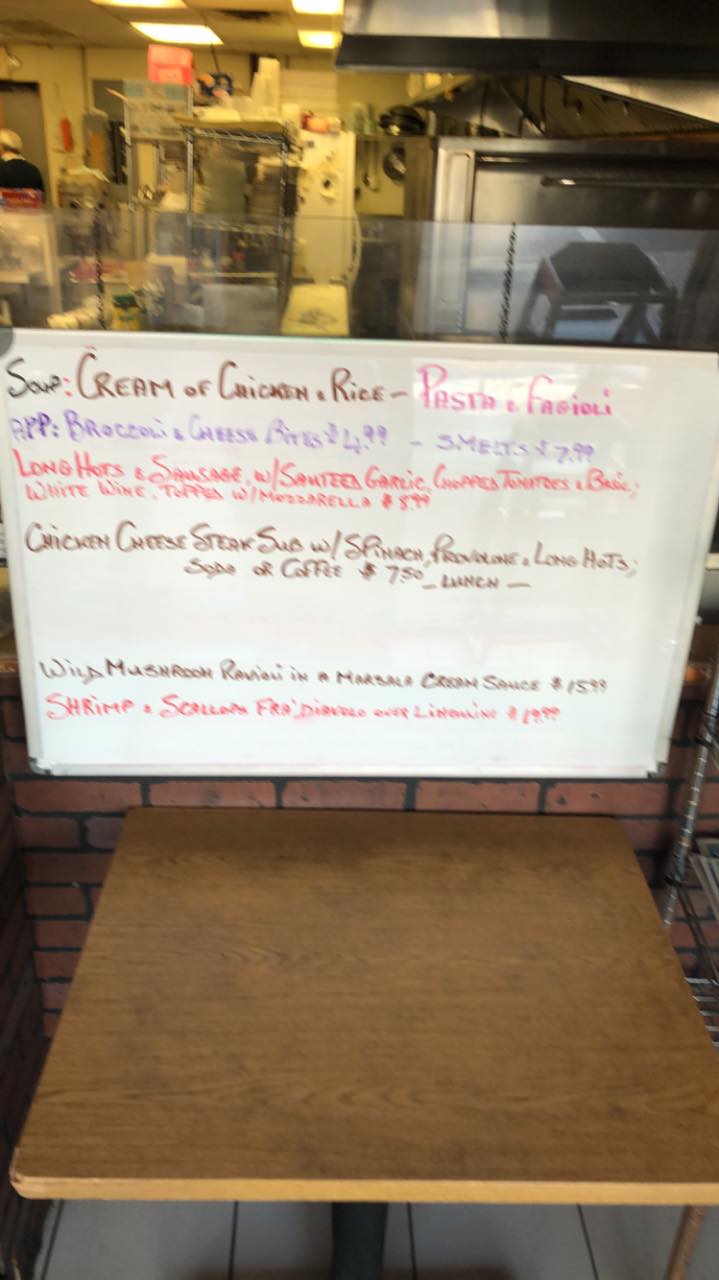 Soup: CREAM OF CHICKEN & RICE - PASTA & FAGIOLI
APP: BROCCOLI & CHEESE BITES $4.99 - SMELTS $7.99
LONG HOTS & SAUSAGE, W/ SAUTEED GARLIC, CHOPPED TOMATOES & BASIL;
WHITE WINE, TOPPED W/ MOZZARELLA $8.99
CHICKEN CHEESE STEAK SUB W/ SPINACH, PROVOLONE & LONG HOTS;
SODA OR COFFEE $7.50 - LUNCH -
WILD MUSHROOM RAVIOLI IN A MARSALA CREAM SAUCE $15.99
SHRIMP & SCALLOPS FRA' DIAVOLO OVER LINGUINE $19.99